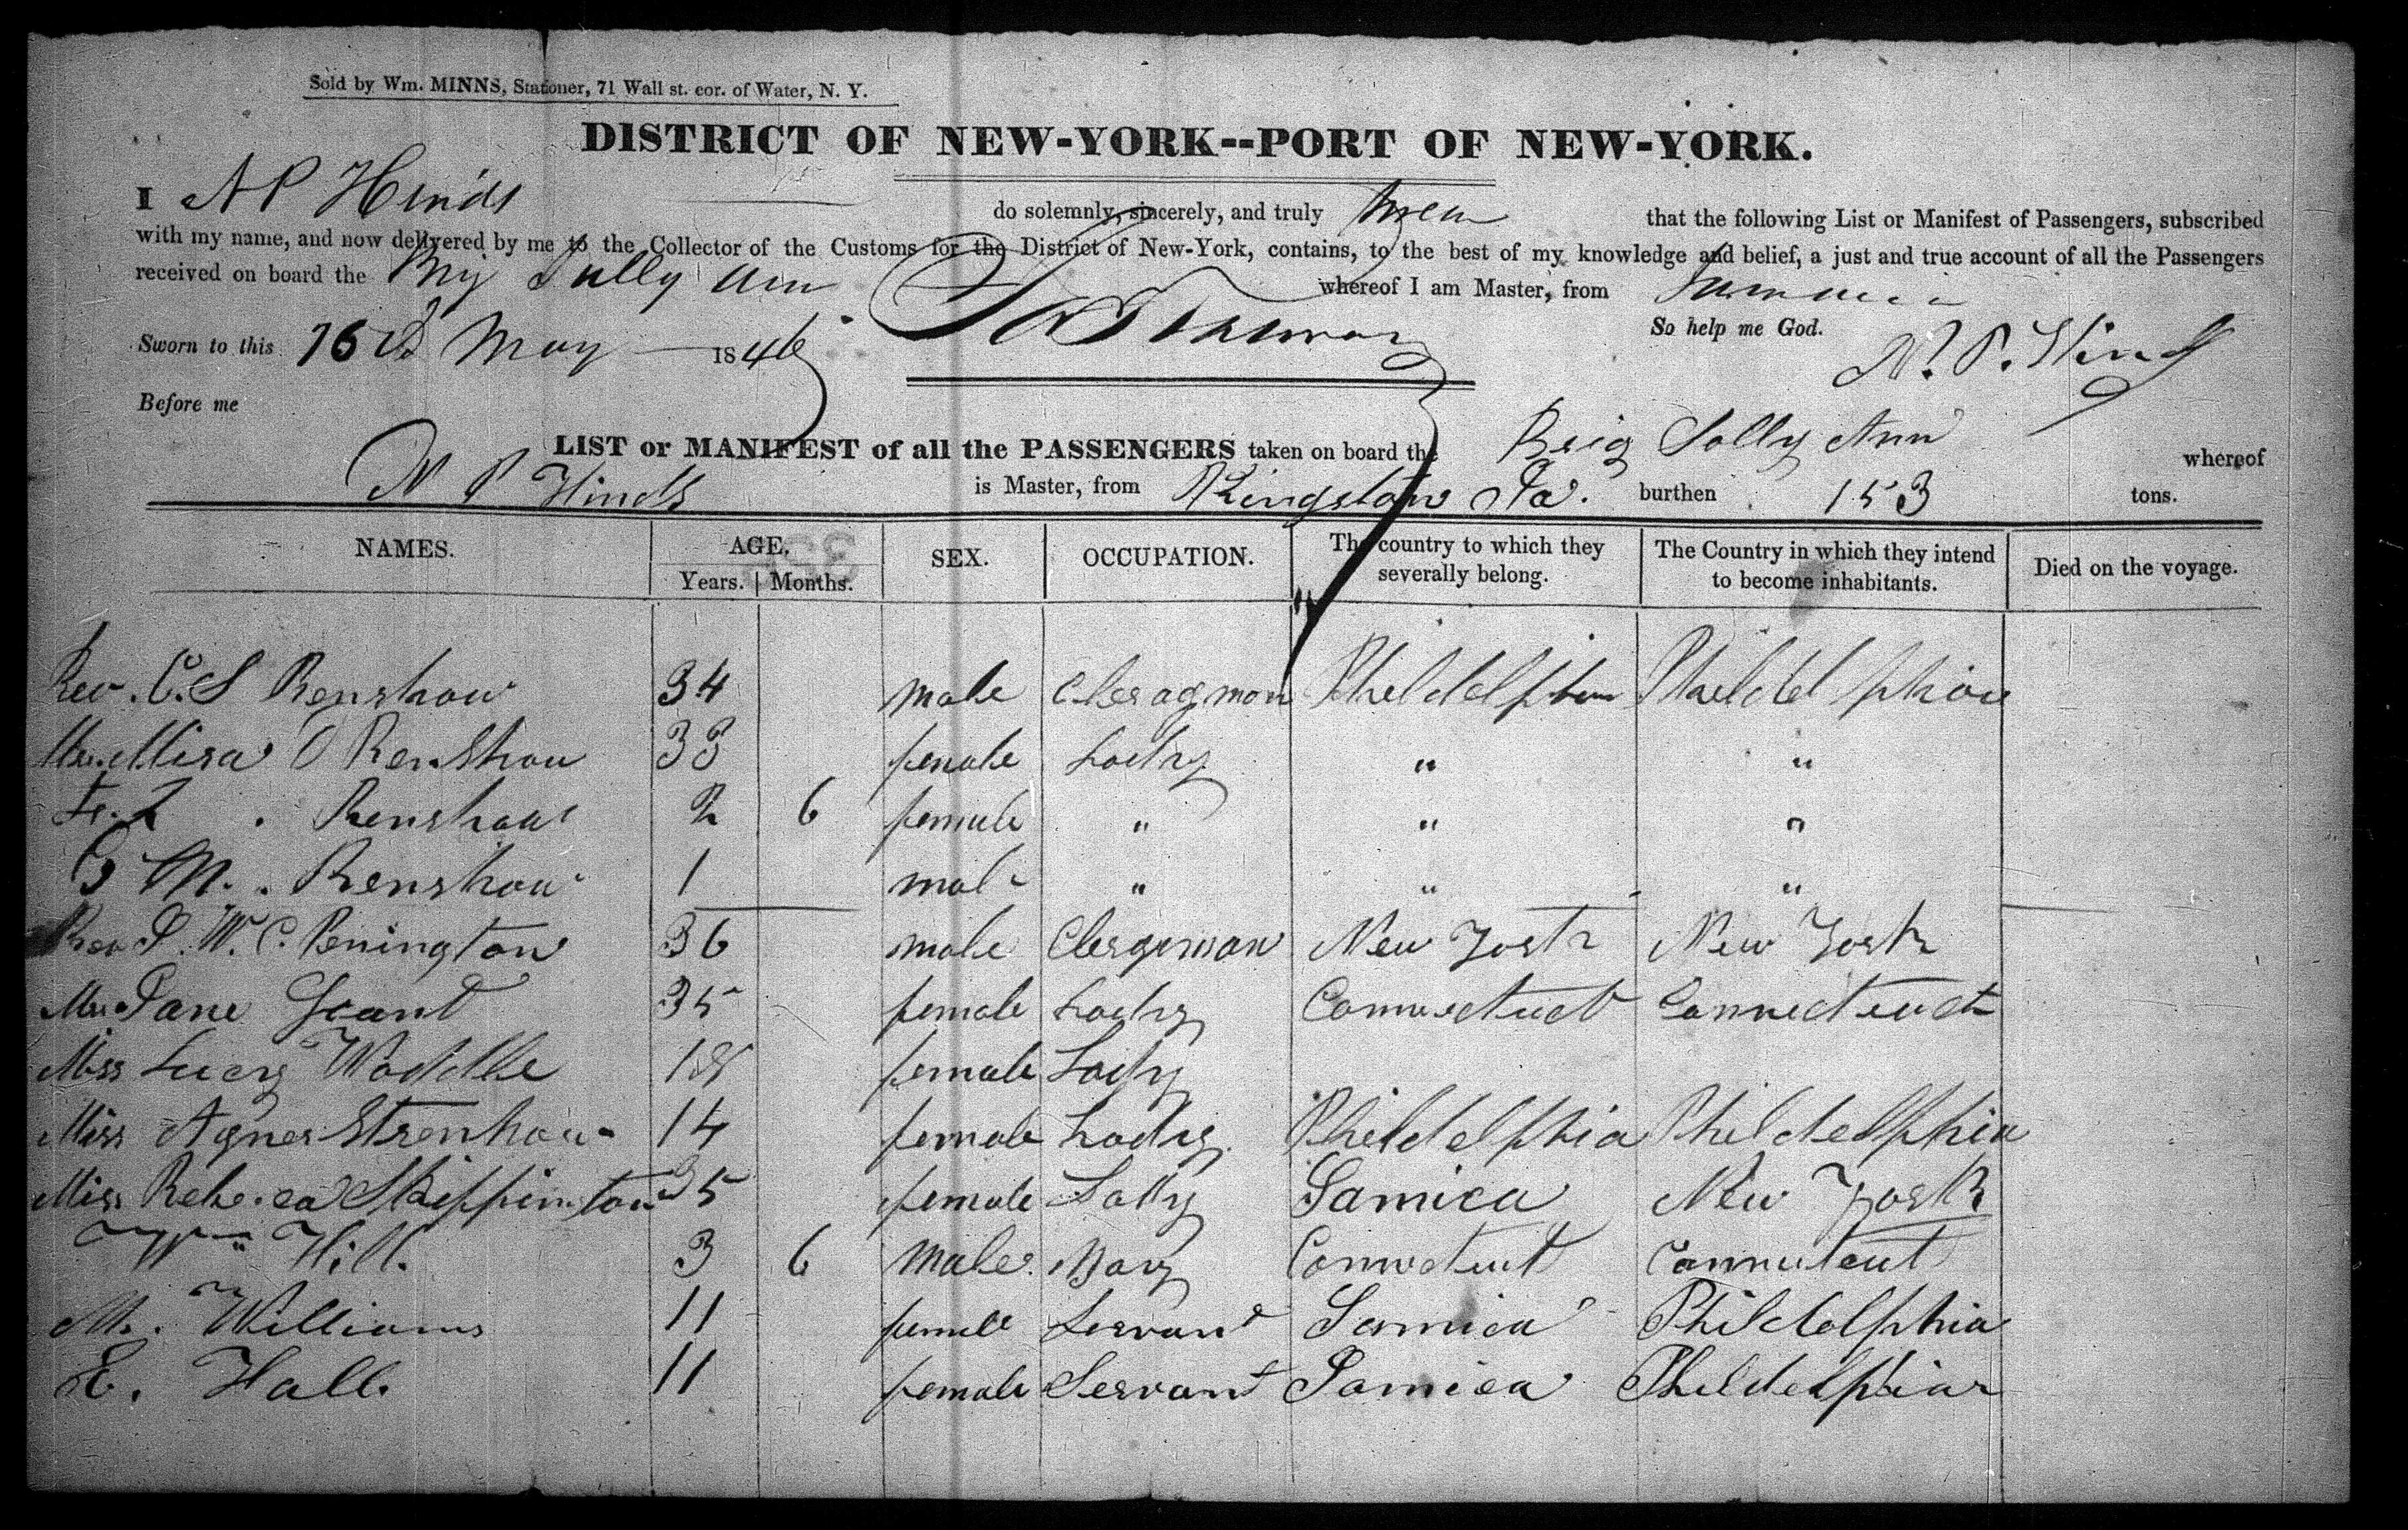 Sold by Wm. MINNS, Stationer, 71 Wall st. cor. of Water, N. Y.
DISTRICT OF NEW-YORK--PORT OF NEW-YORK.
I N P Hinds do solemnly, sincerely, and truly swear that the following List or Manifest of Passengers, subscribed
with my name, and now delivered by me to the Collector of the Customs for the District of New-York, contains, to the best of my knowledge and belief, a just and true account of all the Passengers
received on board the Brig Sally Ann whereof I am Master, from Jamaica
Sworn to this 16th May 1846 So help me God.
N. P. Hinds
Before me
LIST or MANIFEST of all the PASSENGERS taken on board the Brig Sally Ann whereof
N P Hinds is Master, from Kingston Ja. burthen 153 tons.
NAMES. AGE, Years. Months. SEX. OCCUPATION. The country to which they severally belong. The Country in which they intend to become inhabitants. Died on the voyage.
Rev. C. S Renshow 34 male Clergman Phildelphia Phildelphia
Mrs. Renshow 33 female Lady " "
Renshaw 2 6 female " " "
G M. Renshow 1 male " " "
Rev J. W. C. Penington 36 male Clergeman New York New York
Mrs Jane Grant 35 female Lady Connectuct Connectuct
Miss Lucy Waddle 18 female Lady
Miss Agnes Strenhow 14 female Lady Phildelphia Phildelphia
Miss Rebecca Skippington 35 female Lady Jamica New York
Hill. 3 6 Male Boy Connectuct Connectuct
M. Williams 11 female Servant Jamica Phildelphia
E. Hall 11 female Servant Jamica Phildelphia